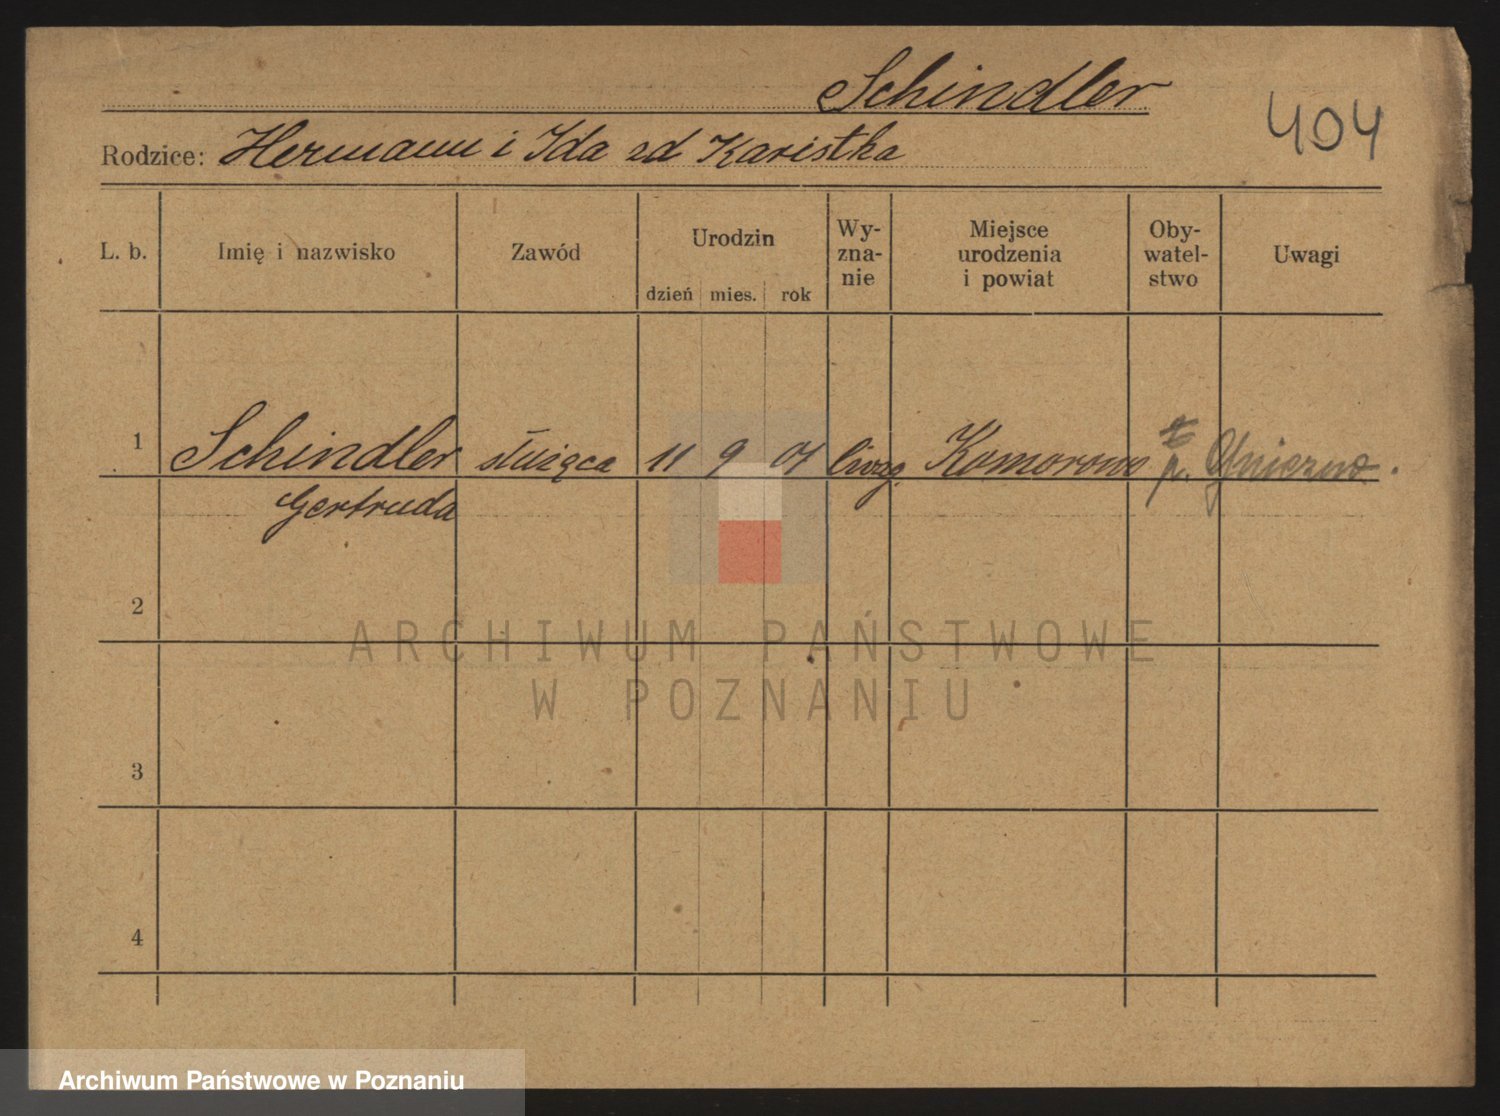 Schindler
404
Rodzice: Hermann i Ida zd Karistka
L. b.
Imię i nazwisko
Zawód
Urodzin
dzień mies. rok
Wy-
zna-
nie
Miejsce
urodzenia
i powiat
Oby-
watel-
stwo
Uwagi
1 Schindler służąca 11 9 01 Komorowo p. Gniezno.
Gertruda
2
3
4
ARCHIWUM PAŃSTWOWE
W POZNANIU
Archiwum Państwowe w Poznaniu